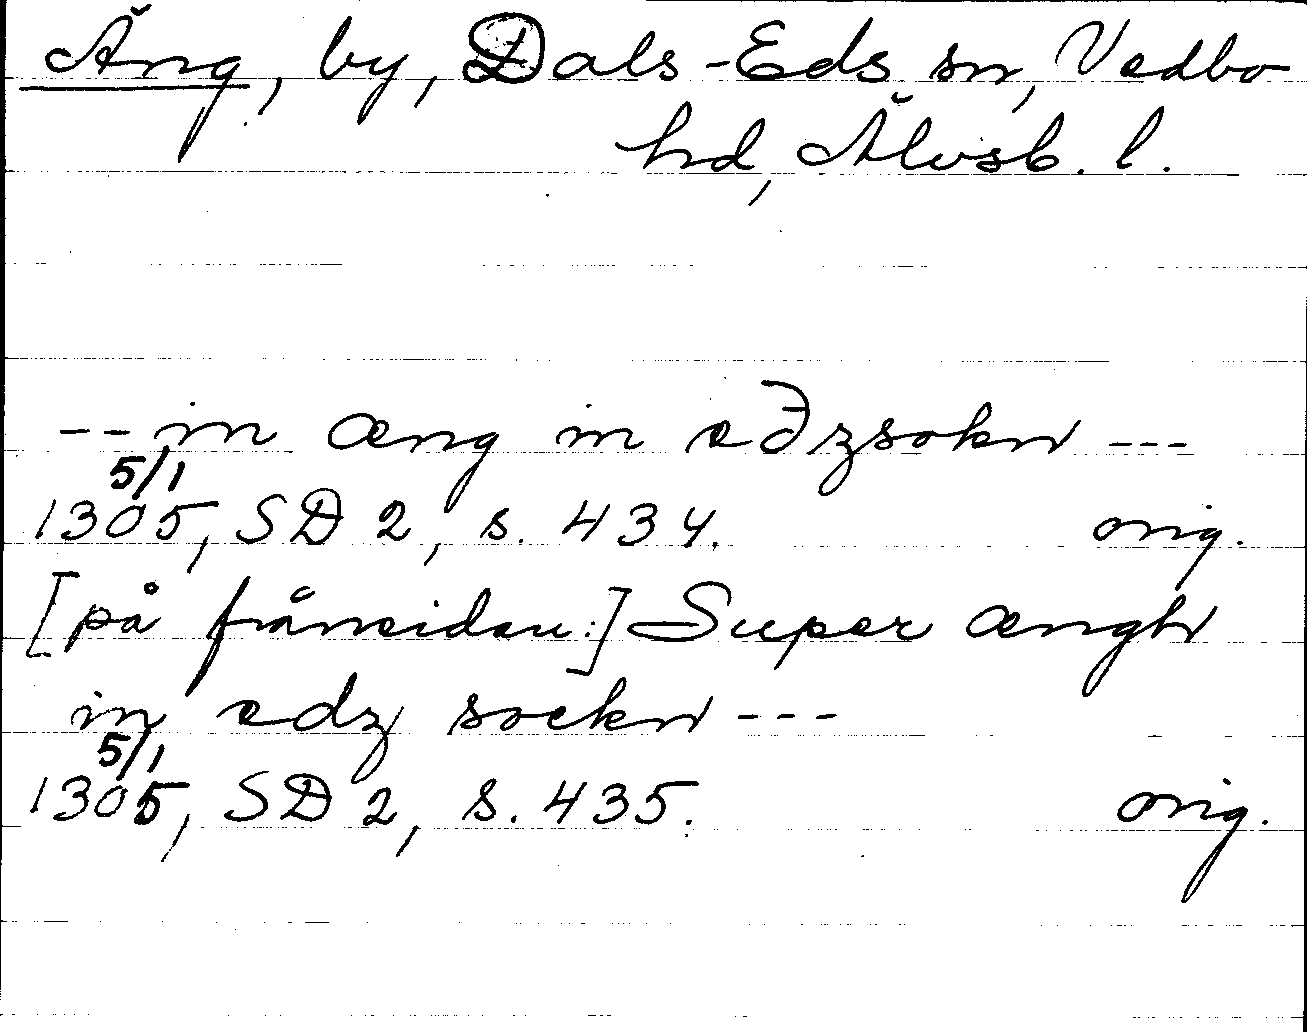 Äng, by, Dals-Eds sn, Vedbo
hd, Älvsb. l.
-- in æng in eðzsokn ---
5/1
1305, SD 2, s. 434. orig.
[på frånsidan:] Super ængh
in edz sockn ---
5/1
1305, SD 2, s. 435. orig.